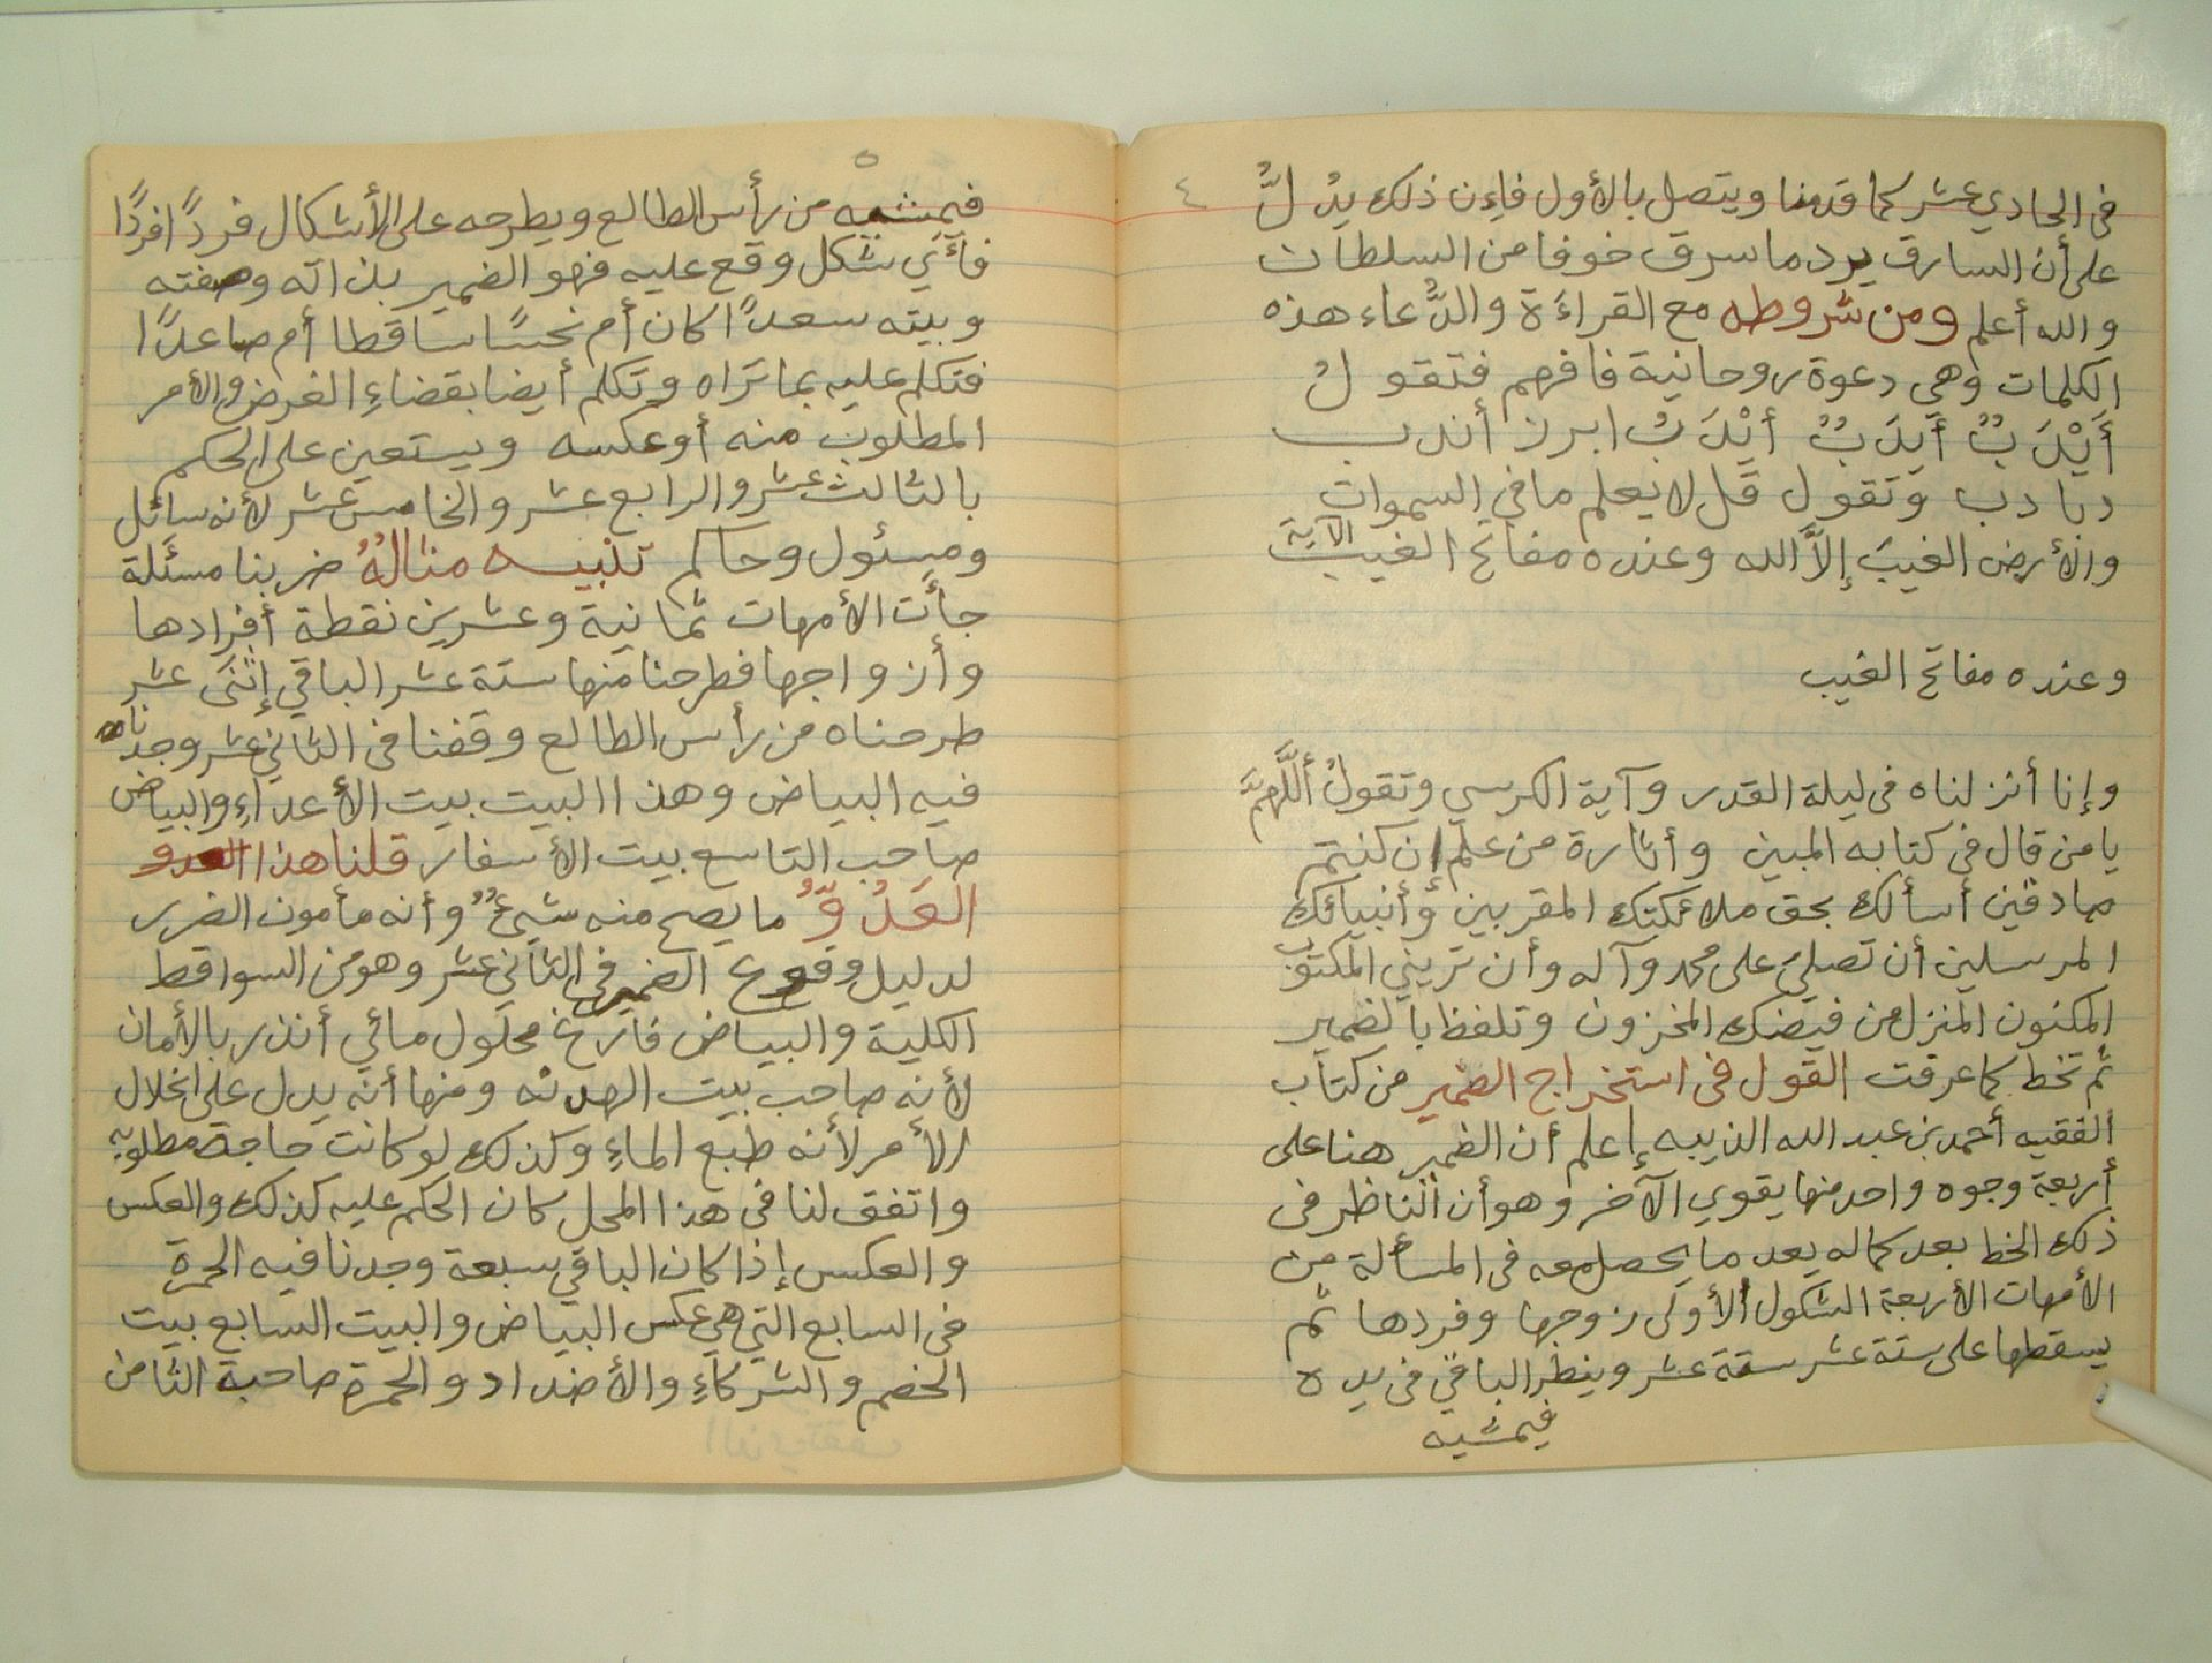 ٤
في الحادي عشر كما قدمنا ويتصل بالأول فإن ذلك يدُلُّ
على أن السارق يرد ما سرق خوفا من السلطان
والله أعلم ومن شروطه مع القراءَة والدُّعاء هذه
الكلمات وهي دعوة روحانية فافهم فتقولُ
أَيْدَبٌ أَيدَبٌ أَيْدَبُ ابرز أندب
دبادب وتقول قل لا يعلم ما في السموات
والأرض الغيبَ إلاَّ الله وعنده مفاتح الغيب الآية
وعنده مفاتح الغيب
وإنا أنزلناه في ليلة القدر وآية الكرسي وتقولُ أللَّهمَّ
يا من قال في كتابه المبين وأثارة من علم إن كنتم
صادقين أسألك بحق ملائكتك المقربين وأنبيائك
المرسلين أن تصلى على محمد وآله وأن تريني المكتوب
المكنون المنزل من فيضك المخزون وتلفظ بالضمير
ثم تخط كما عرفت القول في استخراج الضمير من كتاب
الفقيه أحمد بن عبد الله الذيبه إعلم أن الضمير هنا على
أربعة وجوه واحد منها يقوي الآخر وهو أن الناظر في
ذلك الخط بعد كماله يعد ما يحصل معه في المسألة من
الأمهات الأربعة الشكول الأولى زوجها وفردها ثم
يسقطها على ستة عشر ستة عشر وينظر الباقي في يده
فيمشيه
٥
فيمشيه من رأس الطالع ويطرحه على الأشكال فردًا فردًا
فأي شكل وقع عليه فهو الضمير بذاته وصفته
وبيته سعدًا كان أم نحسًا ساقطا أم صاعدًا
فتكلم عليه بما تراه وتكلم أيضا بقضاءِ الغرض والأمر
المطلوب منه أو عكسه ويستعين على الحكم
بالثالث عشر والرابع عشر والخامس عشر لأنه سائل
ومسئول وحاكم تنبيه مثالهُ ضربنا مسئلة
جأت الأمهات ثمانية وعشرين نقطة أفرادها
وأزواجها فطرحنا منها ستة عشر الباقي إثنى عشر
طرحناه من رأس الطالع وقفنا في الثاني عشر وجدناه
فيه البياض وهذا البيت بيت الأعداءِ والبياض
صاحب التاسع بيت الأسفار قلنا هذا العدو
العَدُوُّ ما يصح منه شيءٌ وأنه مأمون الضرر
لدليل وقوع الضمير في الثاني عشر وهو من السواقط
الكلية والبياض فارغ محلول مائي أنذر بالأمان
لأنه صاحب بيت الهدنه ومنها أنه يدل على انحلال
الأمر لأنه طبع الماءِ وكذلك لو كانت حاجة مطلوبه
واتفق لنا في هذا المحل كان الحكم عليه كذلك والعكس
والعكس إذا كان الباقي سبعة وجدنا فيه الحمرة
في السابع التي هي عكس البياض والبيت السابع بيت
الخصم والشركاءِ والأضداد والحمرة صاحبة الثامن